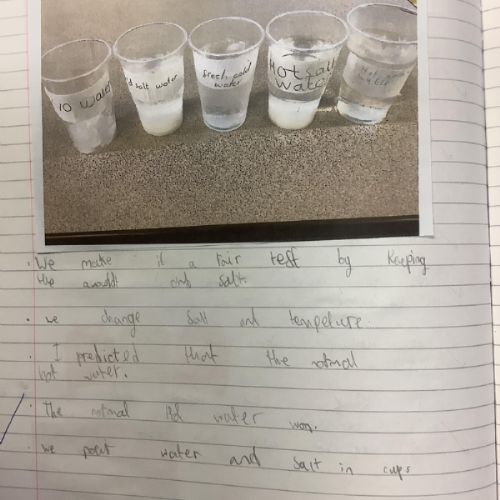 10 water
salt water
fresh cold
water
Hot salt
water
Hot
We make it a fair test by keeping
the amount and salt.
we change salt and tempeture.
I predicted that the normal
hot water.
The normal hot water won.
we pout water and salt in cups